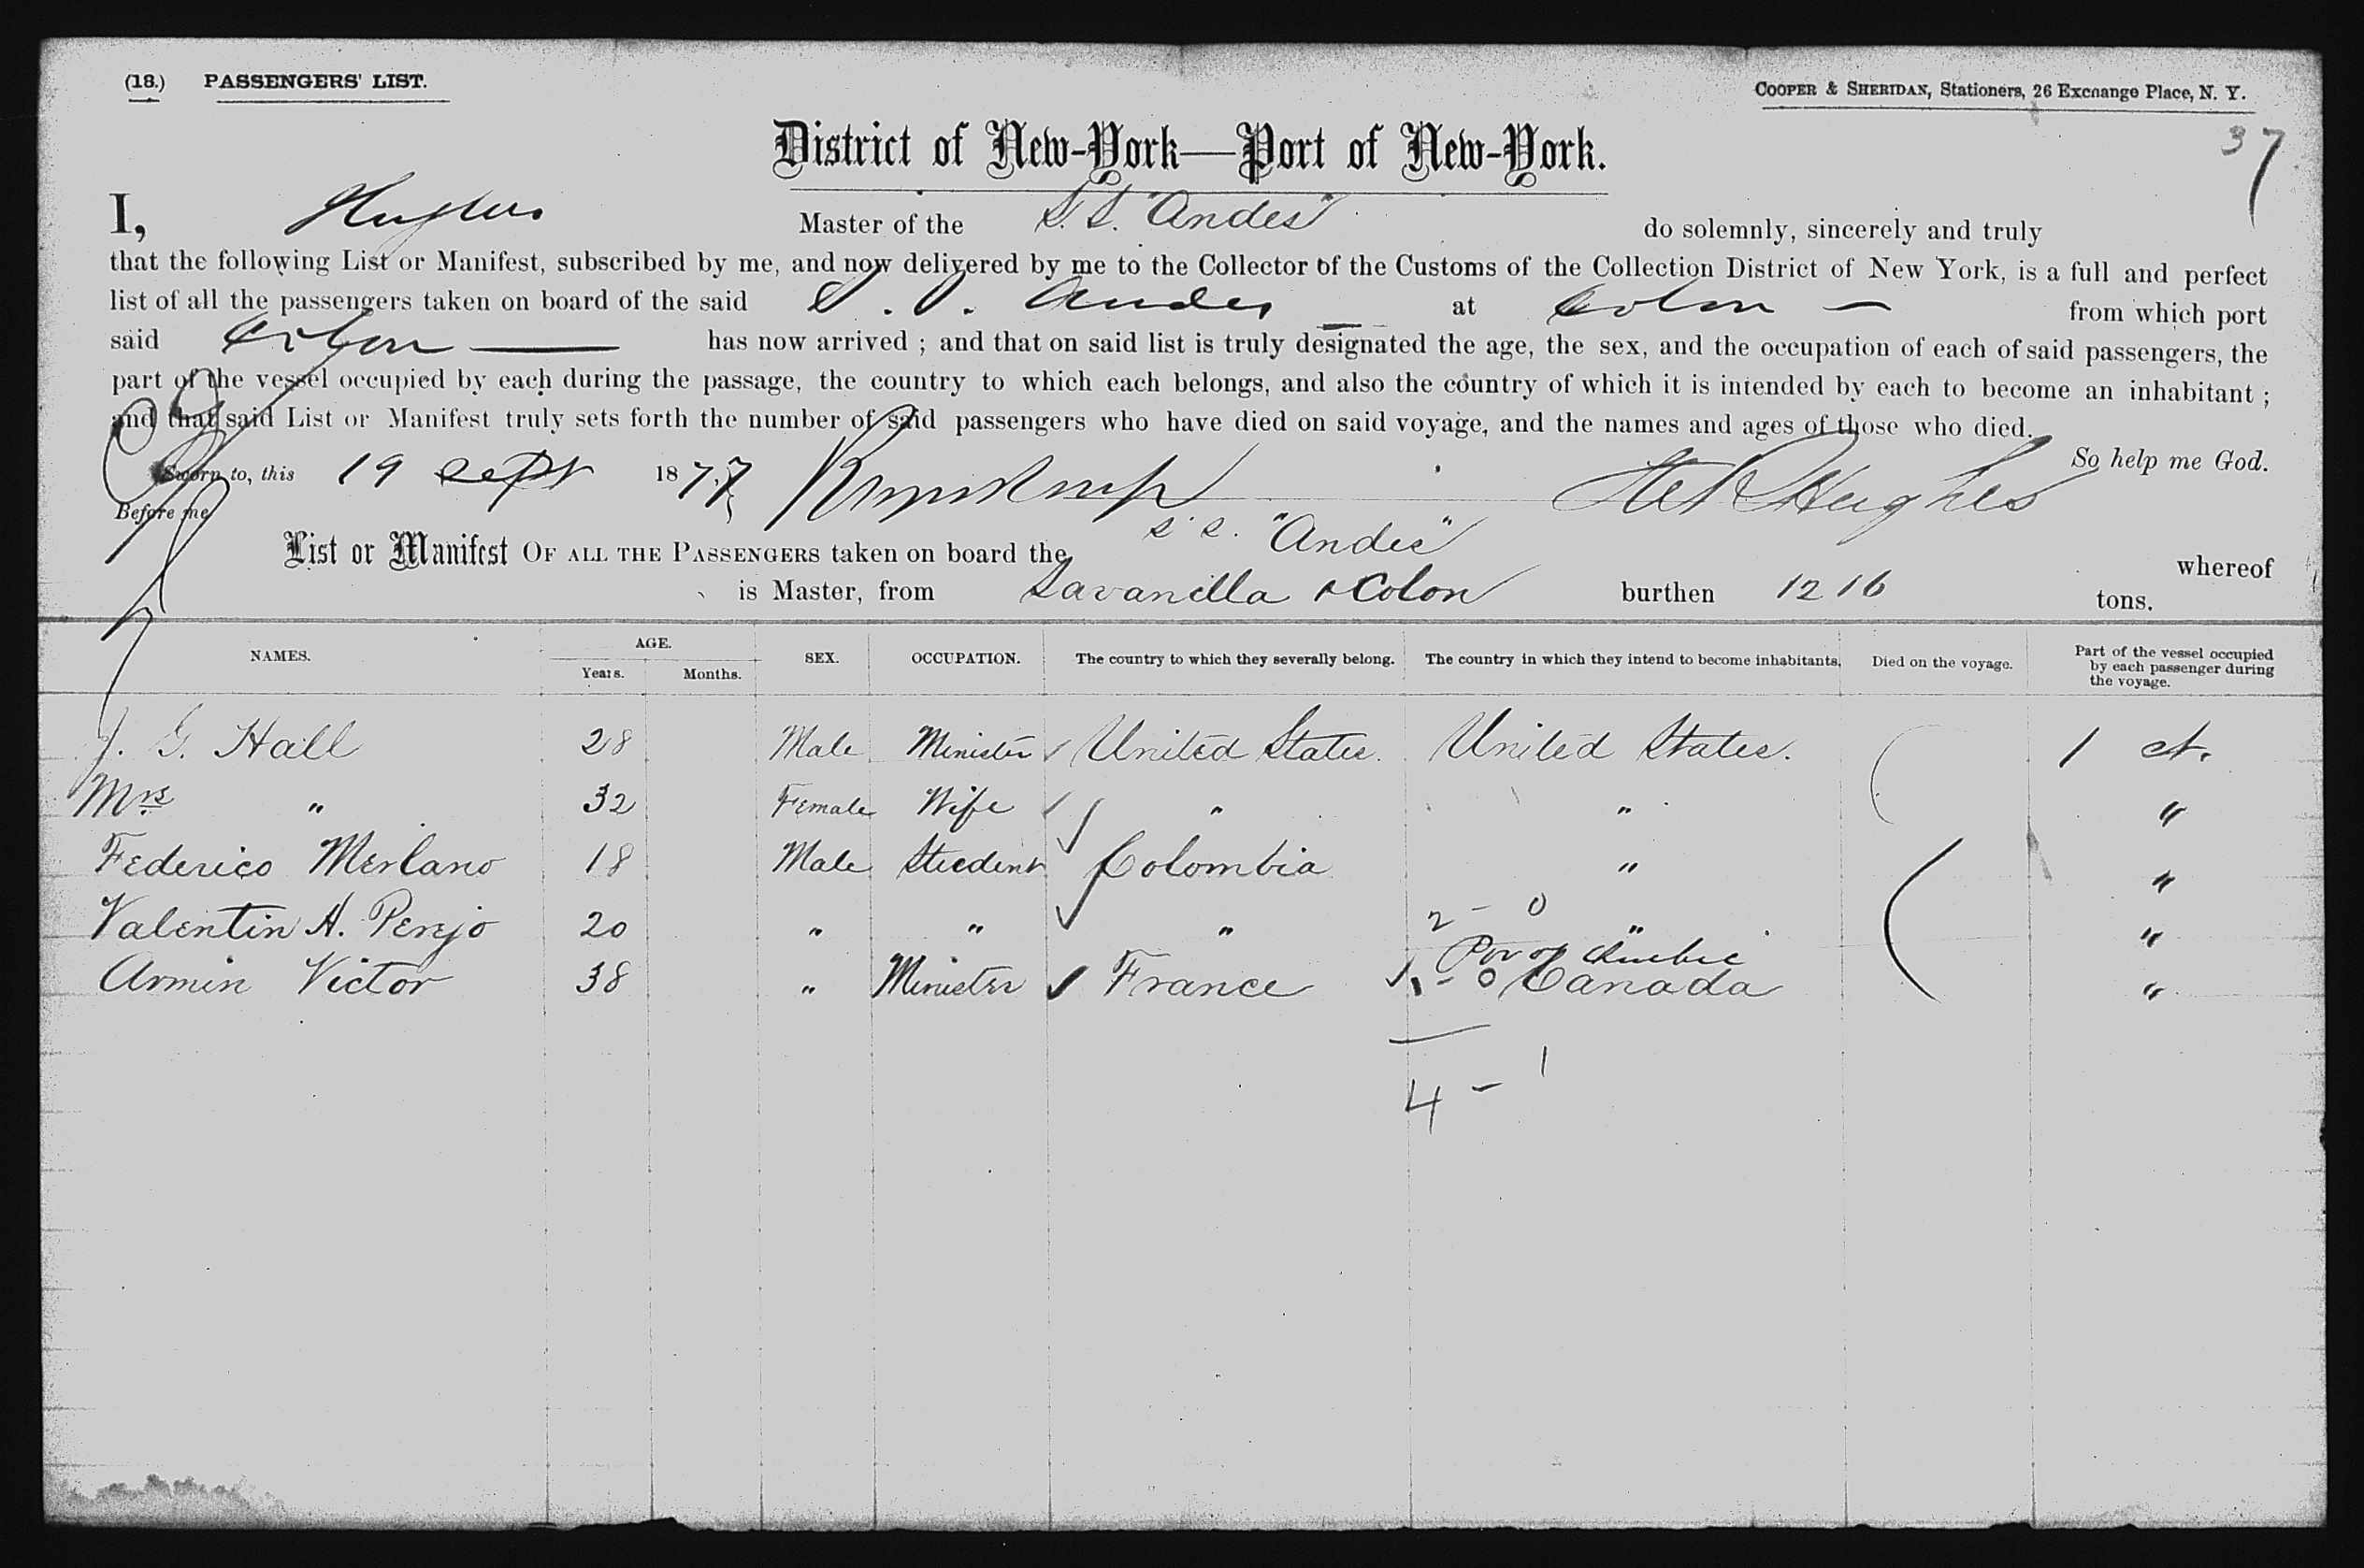 (18.) PASSENGERS' LIST.
COOPER & SHERIDAN, Stationers, 26 Exchange Place, N. Y.
37
District of New-York—Port of New-York.
I, Hughes Master of the S. S. "Andes" do solemnly, sincerely and truly
that the following List or Manifest, subscribed by me, and now delivered by me to the Collector of the Customs of the Collection District of New York, is a full and perfect
list of all the passengers taken on board of the said S. S. Andes at Colon — from which port
said Colon — has now arrived ; and that on said list is truly designated the age, the sex, and the occupation of each of said passengers, the
part of the vessel occupied by each during the passage, the country to which each belongs, and also the country of which it is intended by each to become an inhabitant ;
and that said List or Manifest truly sets forth the number of said passengers who have died on said voyage, and the names and ages of those who died.
So help me God.
Sworn to, this 19 Sept 1877 Hughes
Before me
List or Manifest OF ALL THE PASSENGERS taken on board the S. S. "Andes" whereof
is Master, from Savanilla & Colon burthen 1216 tons.
NAMES. AGE. Years. Months. SEX. OCCUPATION. The country to which they severally belong. The country in which they intend to become inhabitants. Died on the voyage. Part of the vessel occupied by each passenger during the voyage.
J. G. Hall 28 Male Minister United States. United States. 1 ct.
Mrs " 32 Female Wife " " "
Federico Merlano 18 Male Student Colombia " "
2 - 0
Valentin H. Perejo 20 " " " " "
Prov of Quebec
Armin Victor 38 " Minister France 1 - 0 Canada "
4 - 1